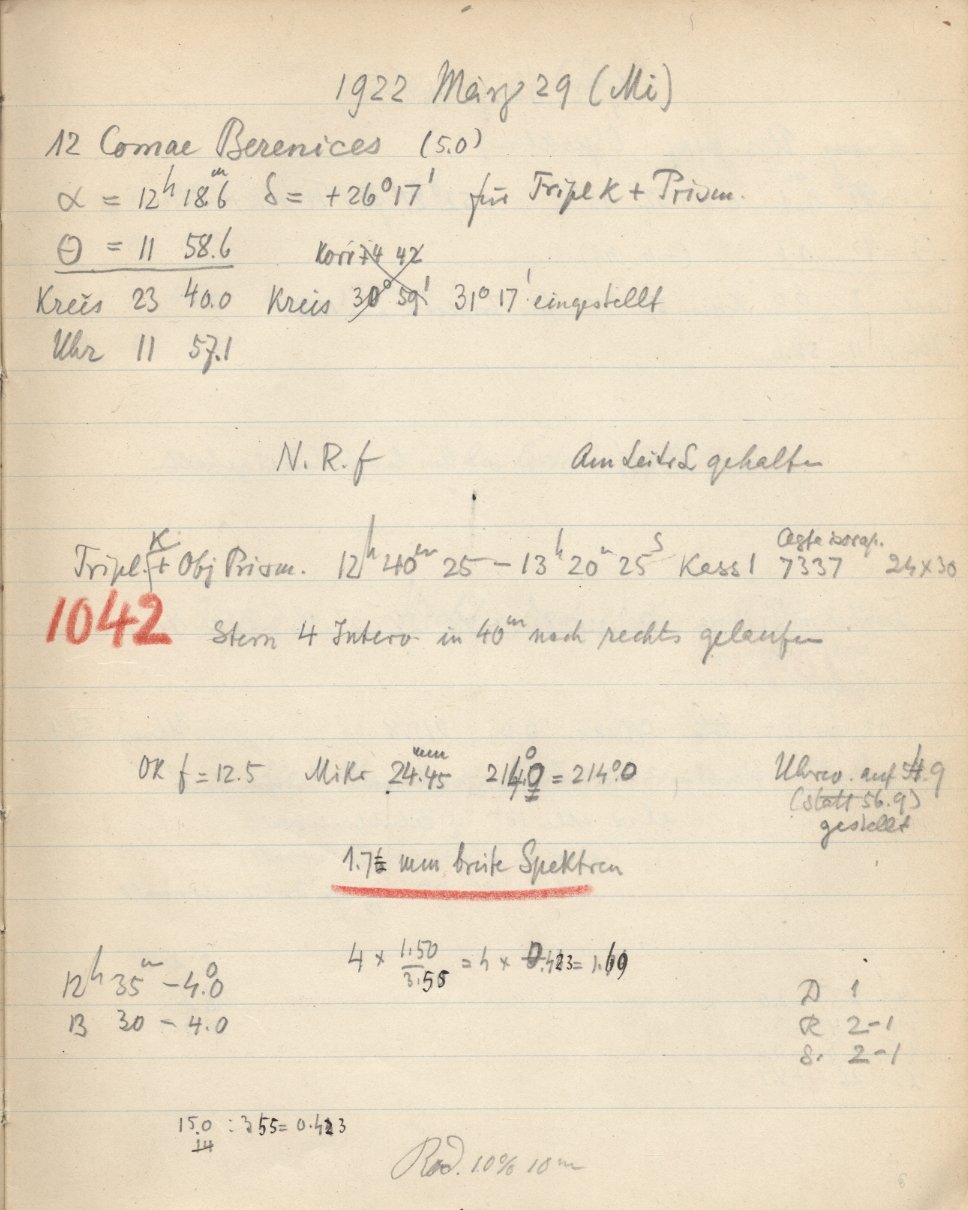 1922 März 29 (Mi)
12 Comae Berenices (5.0)
α = 12h 18.m6 δ = +26° 17' für Tripl K + Prism.
Θ = 11 58.6 Korr 74 42
Kreis 23 40.0 Kreis 30° 59' 31° 17' eingestellt
Uhr 11 57.1
N. R. f Am Leits. gehalten
Agfa isorap.
Tripl. K + Obj Prism. 12h 40m 25 – 13h 20m 25s Kass 1 7337 24×30
1042 Stern 4 Interv. in 40m nach rechts gelaufen
OK f = 12.5 Mikr 24.45 mm = 214°.0 Uhrw. auf 54.9
(statt 56.9)
gestellt
1.7 mm breite Spektren
4 × 1.50/3.55 = 4 × 0.423 = 1.69
12h 35m – 4.°0
13 30 – 4.0
D 1
R 2-1
S. 2-1
15.0 : 355 = 0.423
14
Rod. 10% 10m